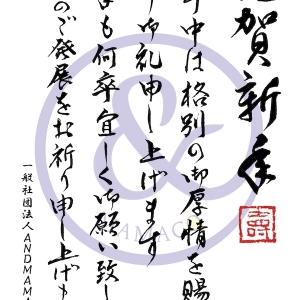 賀新年
中は格別の御厚情を賜
御礼申し上げます
も何卒宜しく御願い致し
のご発展をお祈り申し上げ
一般社団法人ANDMAMA
&
寿